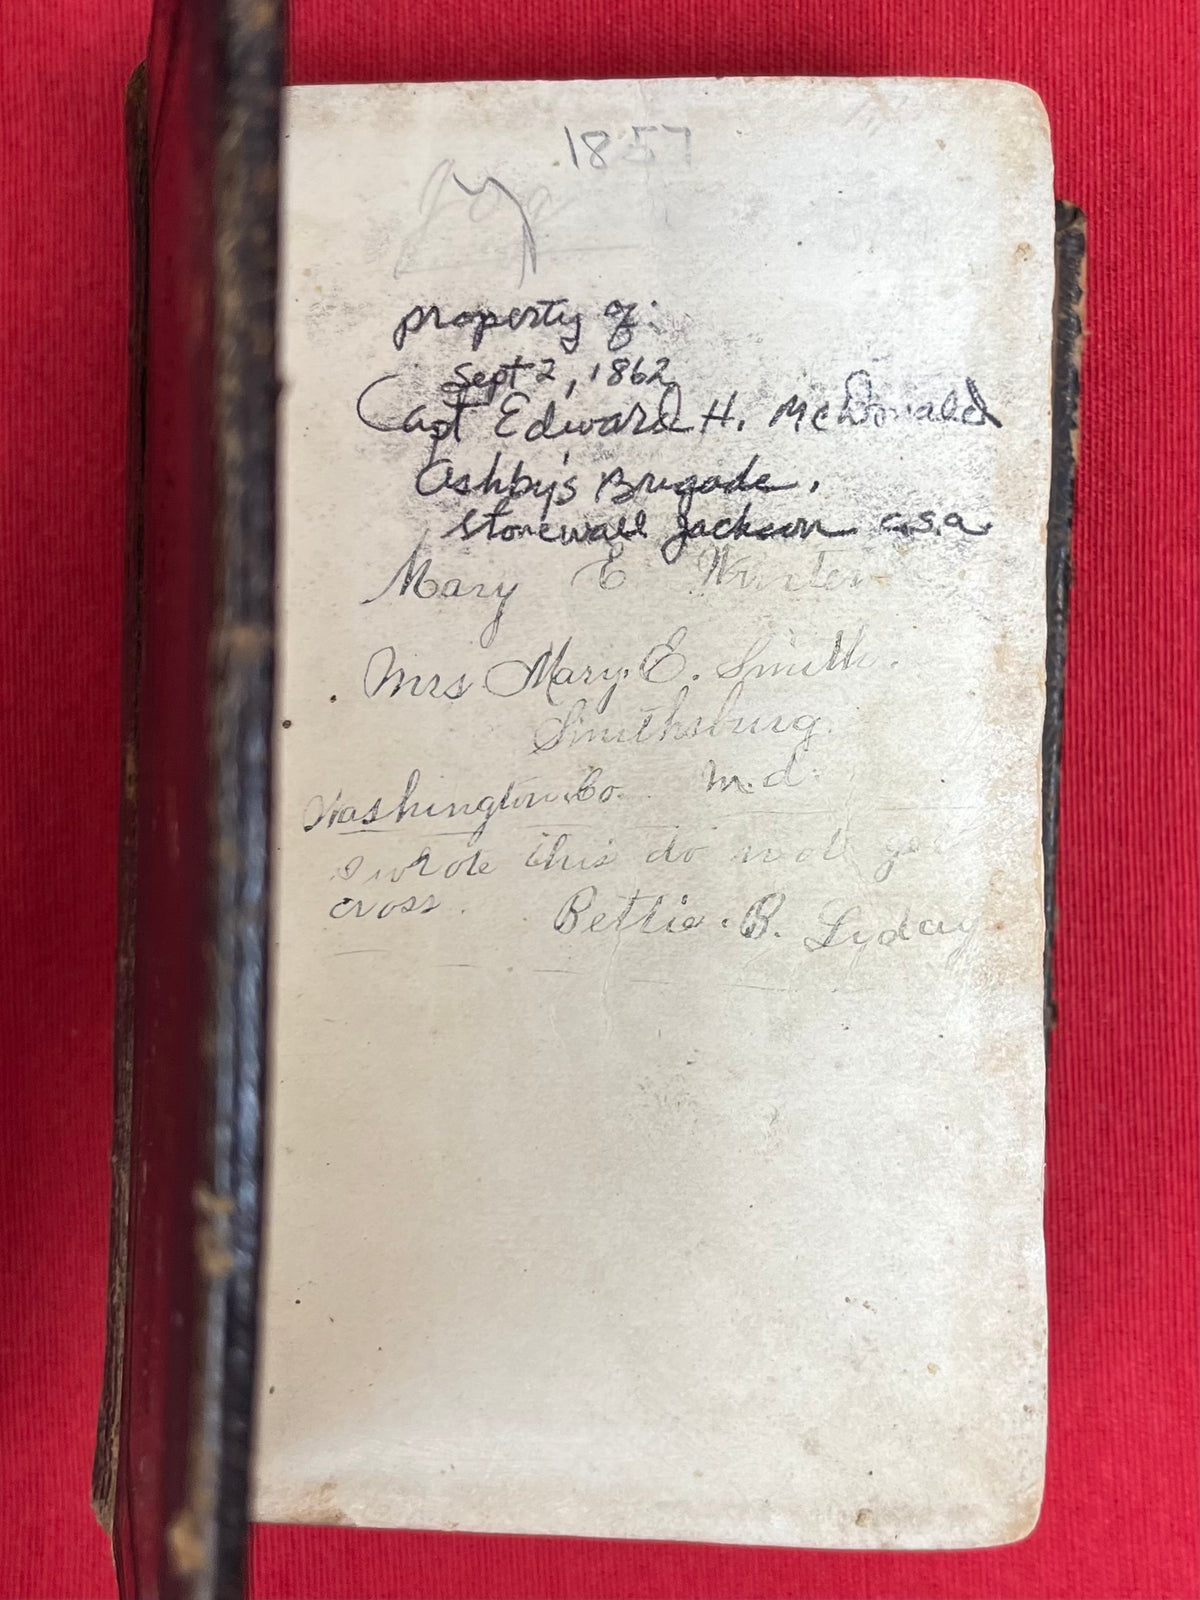 1857
property of:
Sept 2, 1862
Capt Edward H. McDonald
Ashby's Brigade,
Stonewall Jackson C.S.A
Mary E
Mrs Mary. E. Smith.
Smithsburg.
Washington. Co. M.d.
I wrote this do not get
cross. Bettie. B. Lyday